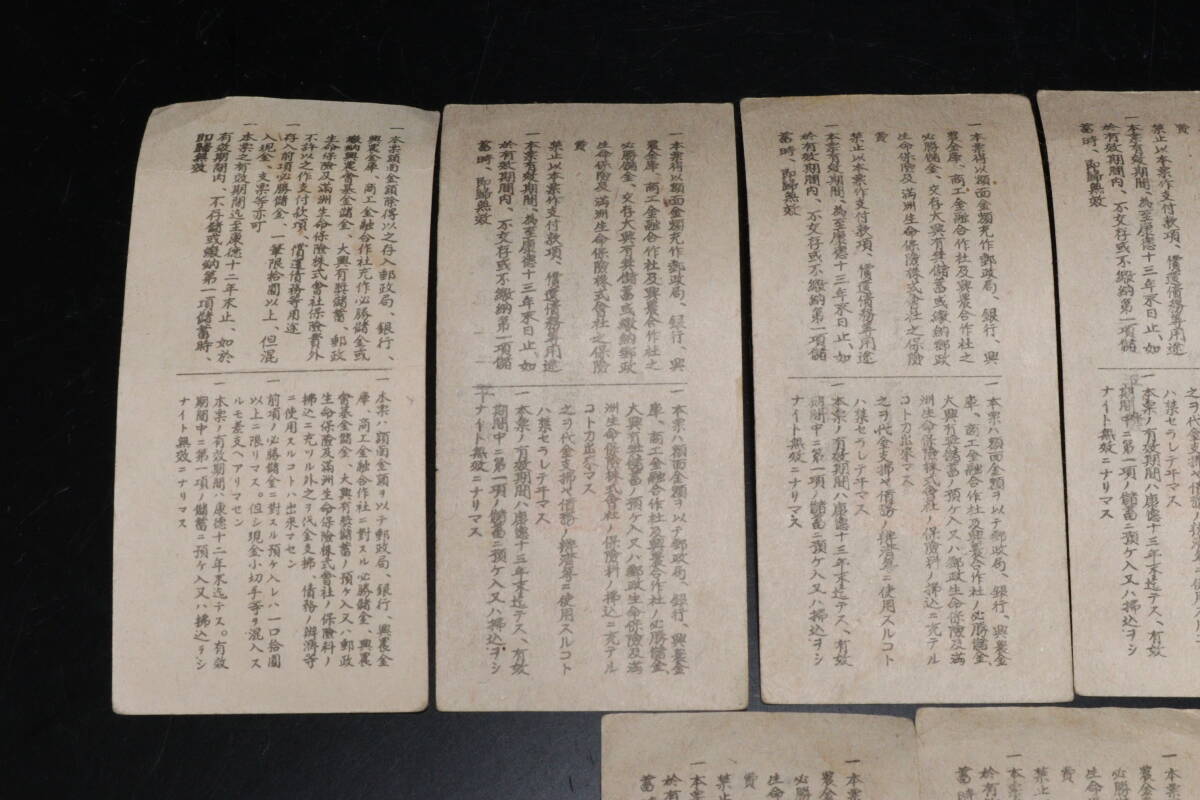 一 本票額面金額除得以之存入郵政局、銀行、
興農金庫、商工金融合作社充作必勝儲金或
繳納興農會基金儲金、大興有獎儲蓄、郵政
生命保險及滿洲生命保險株式會社保險費外
不許以之作支付款項、償還債務等用途
一 存入前項必勝儲金、一筆限拾圓以上、但混
入現金、支票等亦可
一 本票之有效期間迄至康德十二年末止、如於
有效期間内、不存儲或繳納第一項儲蓄時
即歸無效
一 本票ハ額面金額ヲ以テ郵政局、銀行、興農金
庫、商工金融合作社ニ對スル必勝儲金、興農
會基金儲金、大興有獎儲蓄ノ預ケ入又ハ郵政
生命保險及滿洲生命保險株式會社ノ保險料ノ
拂込ニ充ツル外之ヲ代金支拂、債務ノ辨濟等
ニ使用スルコトハ出來マセン
一 前項ノ必勝儲金ニ對スル預ケ入レハ一口拾圓
以上ニ限リマス。但シ現金小切手等ヲ混入ス
ルモ差支ヘアリマセン
一 本票ノ有效期間ハ康德十二年末迄テス。有效
期間中ニ第一項ノ儲蓄ニ預ケ入又ハ拂込ヲシ
ナイト無效ニナリマス
一 本票得以額面金額充作郵政局、銀行、興
農金庫、商工金融合作社及興農合作社之
必勝儲金、交存大興有獎儲蓄或繳納郵政
生命保險及滿洲生命保險株式會社之保險
費
一 禁止以本票作支付款項、償還債務等用途
一 本票有效期間、為至康德十三年末日止、如
於有效期間内、不交存或不繳納第一項儲
蓄時、即歸無效
一 本票ハ額面金額ヲ以テ郵政局、銀行、興農金
庫、商工金融合作社及興農合作社ノ必勝儲金、
大興有獎儲蓄ノ預ケ入又ハ郵政生命保險及滿
洲生命保險株式會社ノ保險料ノ拂込ニ充テル
コトカ出來マス
一 之ヲ代金支拂ヤ債務ノ辨濟等ニ使用スルコト
ハ禁セラレテ牛マス
一 本票ノ有效期間ハ康德十三年末迄テス、有效
期間中ニ第一項ノ儲蓄ニ預ケ入又ハ拂込ヲシ
ナイト無效ニナリマス
一 本票得以額面金額充作郵政局、銀行、興
農金庫、商工金融合作社及興農合作社之
必勝儲金、交存大興有獎儲蓄或繳納郵政
生命保險及滿洲生命保險株式會社之保險
費
一 禁止以本票作支付款項、償還債務等用途
一 本票有效期間、為至康德十三年末日止、如
於有效期間内、不交存或不繳納第一項儲
蓄時、即歸無效
一 本票ハ額面金額ヲ以テ郵政局、銀行、興農金
庫、商工金融合作社及興農合作社ノ必勝儲金、
大興有獎儲蓄ノ預ケ入又ハ郵政生命保險及滿
洲生命保險株式會社ノ保險料ノ拂込ニ充テル
コトカ出來マス
一 之ヲ代金支拂ヤ債務ノ辨濟等ニ使用スルコト
ハ禁セラレテ牛マス
一 本票ノ有效期間ハ康德十三年末迄テス、有效
期間中ニ第一項ノ儲蓄ニ預ケ入又ハ拂込ヲシ
ナイト無效ニナリマス
費
一 禁止以本票作支付款項、償還債務等用途
一 本票有效期間、為至康德十三年末日止、如
於有效期間内、不交存或不繳納第一項儲
蓄時、即歸無效
一 之ヲ代金支拂ヤ債務ノ辨濟等ニ使用スルコト
ハ禁セラレテ牛マス
一 本票ノ有效期間ハ康德十三年末迄テス、有效
期間中ニ第一項ノ儲蓄ニ預ケ入又ハ拂込ヲシ
ナイト無效ニナリマス
一 本票
農金
必勝
生命
費
一 禁止
一 本票
於有
蓄時
一 本票
農金
必勝
生命
費
一 禁止
一 本票
於有
蓄時